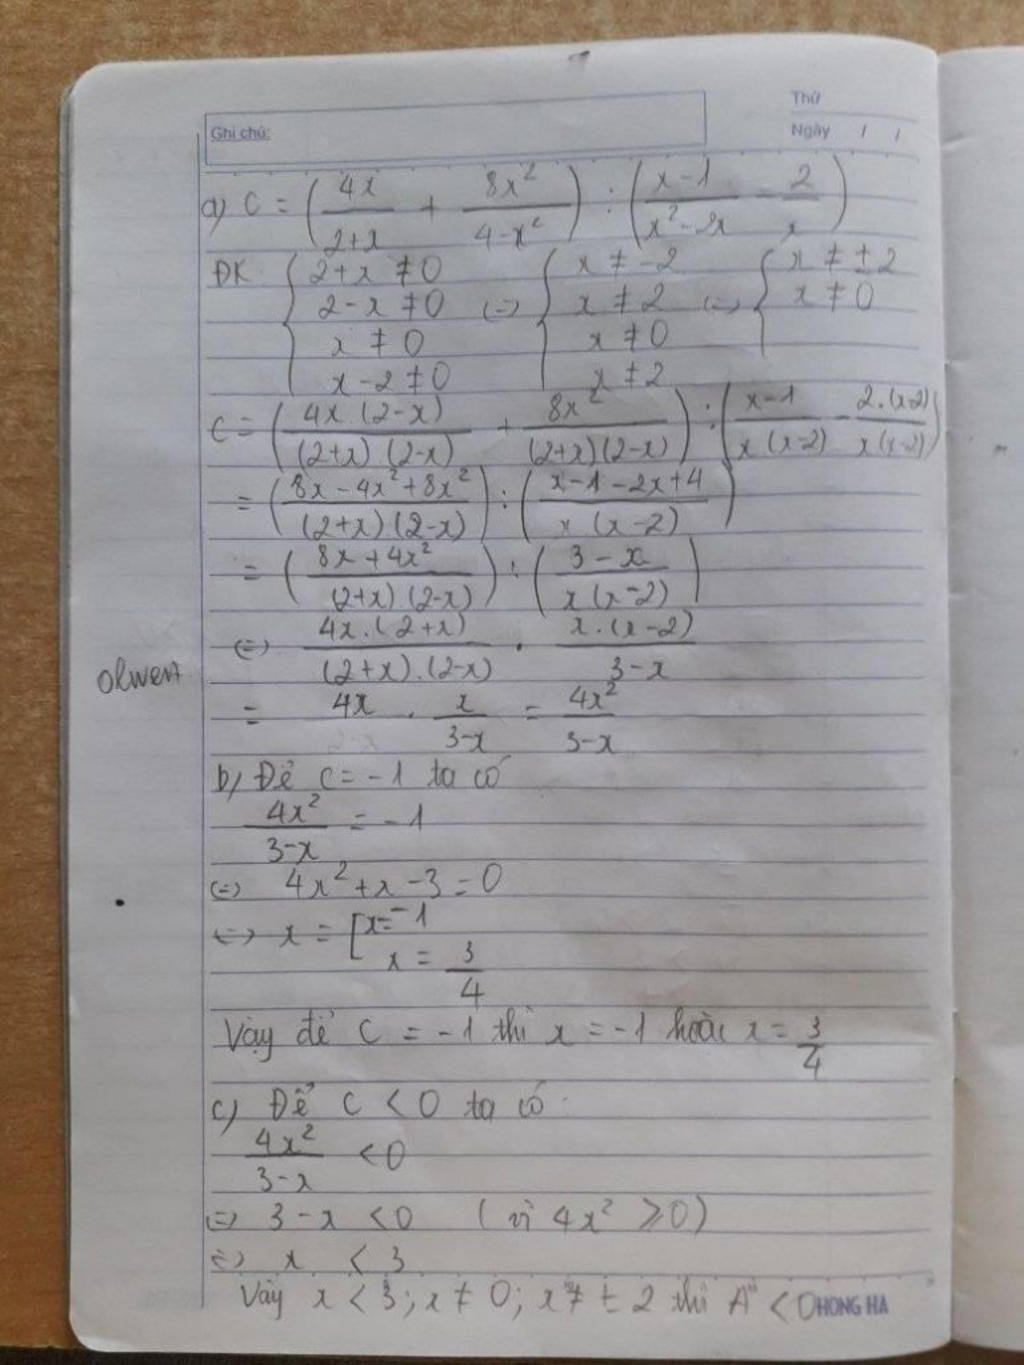 Thứ
Ghi chú:
Ngày / /
a) C = (4x/(2+x) + 8x²/(4-x²)) : ((x-1)/(x²-2x) - 2/x)
ĐK { 2+x ≠ 0 { x ≠ -2 { x ≠ ±2
2-x ≠ 0 (=) x ≠ 2 (=) x ≠ 0
x ≠ 0 x ≠ 0
x-2 ≠ 0 x ≠ 2
C = (4x.(2-x)/((2+x)(2-x)) + 8x²/((2+x)(2-x))) : ((x-1)/(x(x-2)) - 2.(x-2)/(x(x-2)))
= ((8x-4x²+8x²)/((2+x)(2-x))) : ((x-1-2x+4)/(x(x-2)))
= ((8x+4x²)/((2+x).(2-x))) : ((3-x)/(x(x-2)))
(=) 4x.(2+x)/((2+x).(2-x)) . x.(x-2)/(3-x)
olwen
= 4x . x/(3-x) = 4x²/(3-x)
b) Để C = -1 ta có
4x²/(3-x) = -1
(=) 4x²+x-3 = 0
(=) x = [ x = -1
x = 3/4
Vậy để C = -1 thì x = -1 hoặc x = 3/4
c) Để C < 0 ta có
4x²/(3-x) < 0
(=) 3-x < 0 (vì 4x² ≥ 0)
(=) x < 3
Vậy x < 3; x ≠ 0; x ≠ ±2 thì A < 0
HONG HA